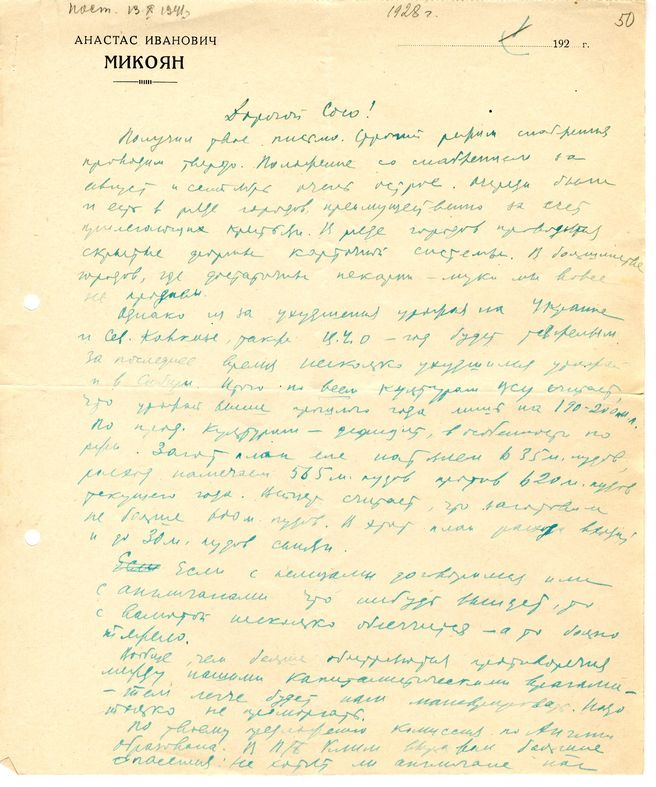 пост. 13 X 1941
1928 г.
50
АНАСТАС ИВАНОВИЧ
МИКОЯН
192 г.
Дорогой Сосо!
Получил твое письмо. Строгий режим снабжения
проводим твердо. Положение со снабжением за
август и сентябрь очень острое. Очереди были
и есть в ряде городов, преимущественно за счет
прилегающих крестьян. В ряде городов проводятся
скрытые формы карточной системы. В большинстве
городов, где достаточно пекарен – муки мы вовсе
не продаем.
Однако из за ухудшения урожая на Украине
и Сев. Кавказе, также Ц.Ч.О – год будет тяжелым.
За последнее время несколько ухудшился урожай
и в Сибири. Итого по всем культурам ЦСУ считает,
что урожай выше прошлого года лишь на 190-200 м.п.
По прод. культурам – дефицит, в особенности по
ржи. 635 м. пудов,
расход намечаем 565 м. пудов против 620 м. пудов
текущего года. считает, что заготовим
не больше м. пудов. В этот план расхода входят
и до 30 м. пудов
Если Если с немцами договоримся или
с англичанами что нибудь выйдет, то
с валютой несколько облегчится – а то больно
тяжело.
Вообще, чем больше обостряются противоречия
между нашими капиталистическими врагами –
– тем легче будет нам маневрировать. Надо
только не проморгать.
По твоему предложению комиссия по Англии
образована. В П/Б Клим выразил большие
опасения: не хотят ли англичане нас